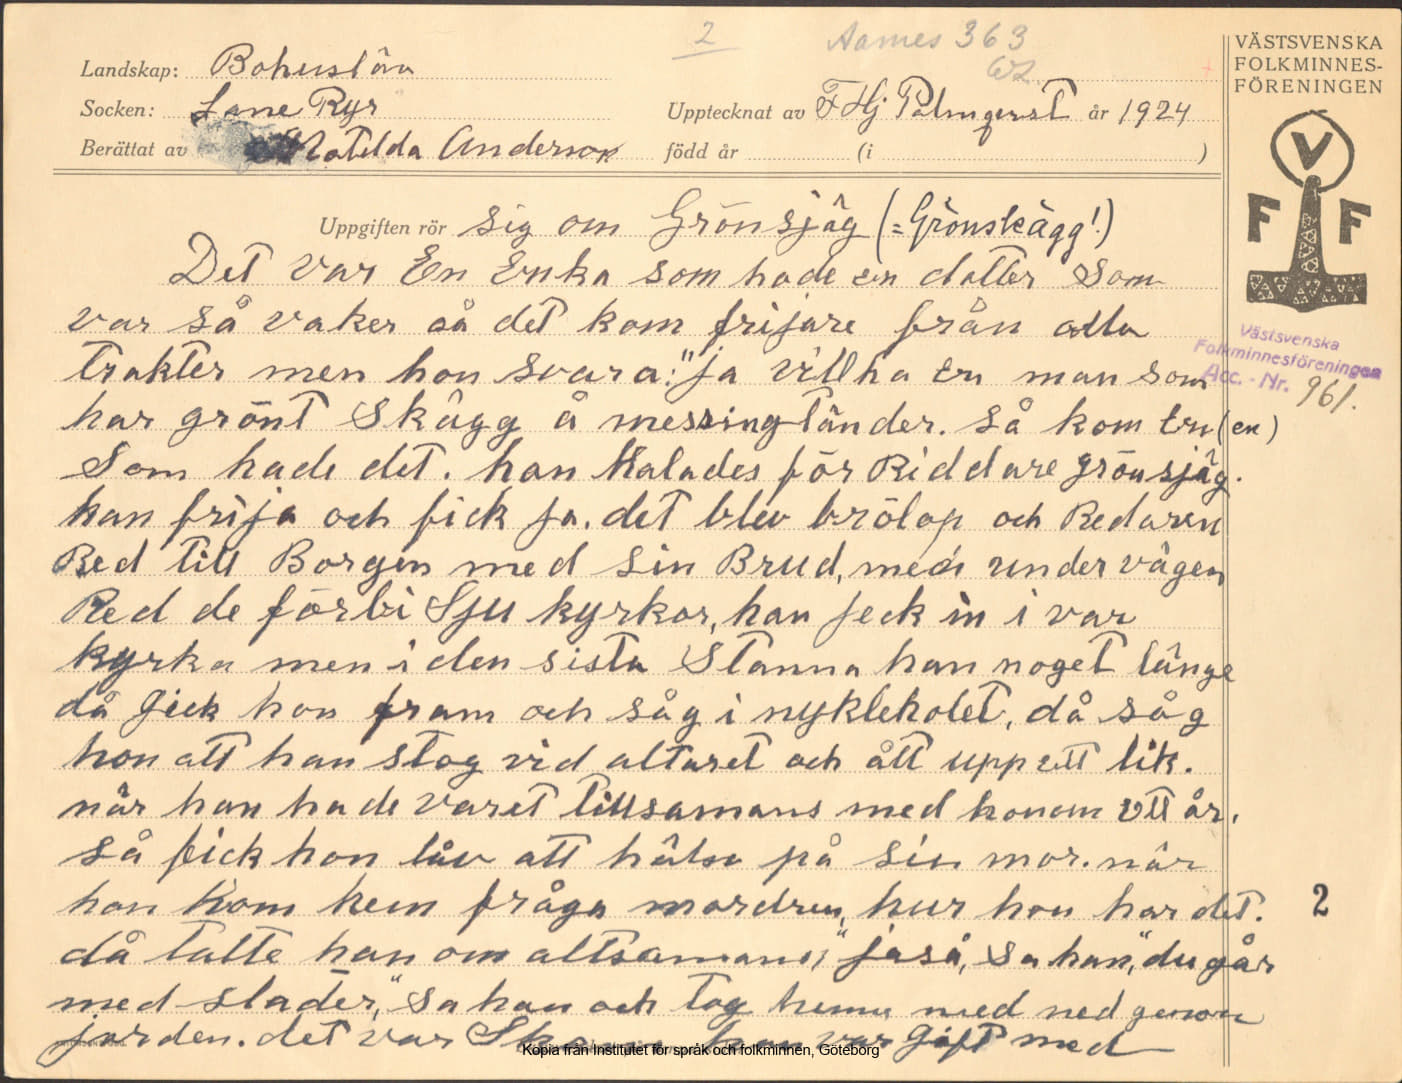 2
Aarnes 363
VÄSTSVENSKA
FOLKMINNES-
FÖRENINGEN
Landskap: Bohuslän
Socken: Lane Ryr
Upptecknat av F Hj Palmqvist år 1924
Berättat av Matelda Anderson
född år (i )
V
F F
Uppgiften rör sig om Grönsjäg (=Grönskägg!)
Det var En Enka som hade en dotter Som
var så vaker så det kom frijare från alla
trakter men hon svara: "ja vill ha En man som
har grönt Skägg å messingtänder. så kom En (en)
Som hade det. han Kalades för Riddare grönsjäg.
han frija och fick ja. det blev brölop och Redaren
Red till Borgen med sin Brud, men under vägen
Red de förbi Sju kyrkor, han jeck in i var
kyrka men i den sista Stanna han noget länge
då gick hon fram och såg i nykleholet, då såg
hon att han stog vid altaret och ått upp ett lik.
när hon hade varet tillsamans med honom ett år.
så fick hon låv att hälsa på sin mor. när
hon kom hem fråga mordren, hur hon har det.
då talte hon om altsamans, "jaså, sa han, "du går
med slader," sa han och tog henne med ned genom
jorden. det var han var gift med
Västsvenska
Folkminnesföreningen
Acc. - Nr. 961.
2
Kopia från Institutet för språk och folkminnen, Göteborg